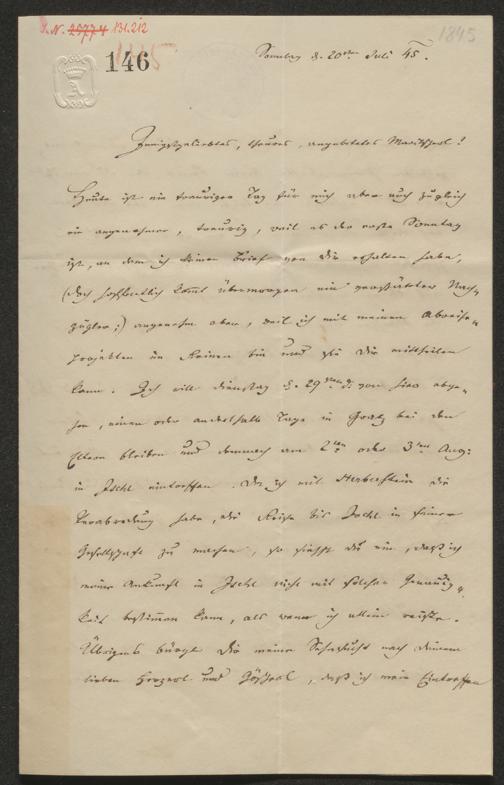 J. N. 25774 131.212
146
115
1845
Sonntag d. 20ten Juli 45.
Innigstgeliebtes, theures, angebetetes Marischerl!
Heute ist ein trauriger Tag für mich aber auch zugleich
ein angenehmer, traurig, weil es der erste Sonntag
ist, an dem ich keinen Brief von Dir erhalten habe,
(doch hoffentlich kommt übermorgen ein verspäteter Nach=
zügler;) angenehm aber, weil ich mit meinen Abreise=
projekten im Reinen bin und sie Dir mittheilen
kann. Ich will Dienstag d. 29ten d. von hier abge=
hen, einen oder anderthalb Tage in Gratz bei den
Eltern bleiben und demnach am 2ten oder 3ten Aug:
in Ischl eintreffen. Da ich mit Herberstein die
Verabredung habe, die Reise bis Ischl in seiner
Gesellschaft zu machen, so siehst Du ein, daß ich
meine Ankunft in Ischl nicht mit solcher Genauig=
keit bestimmen kann, als wenn ich allein reiste.
Übrigens bürgt Dir meine Sehnsucht nach deinem
lieben Herzerl und, daß ich mein Eintreffen